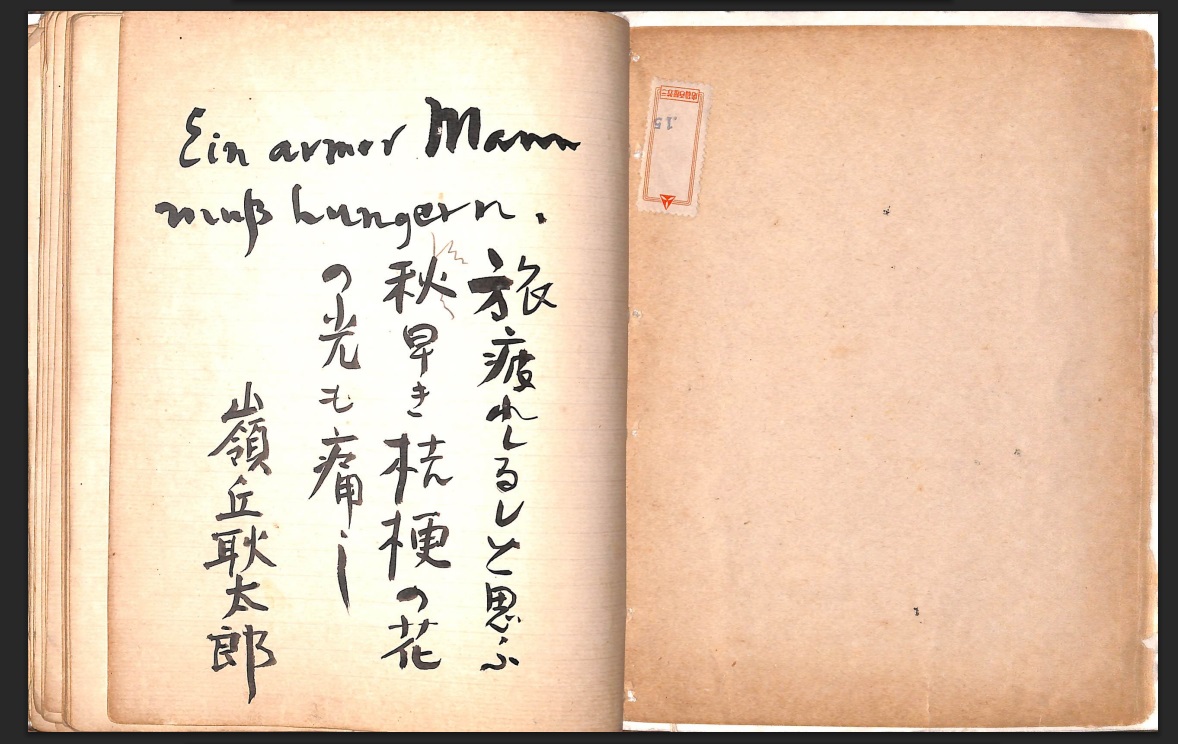 Ein armer Mann
muß hungern.
旅疲れしるしと思ふ
秋早き桔梗の花
の光も痛し
嶺丘耿太郎
.15